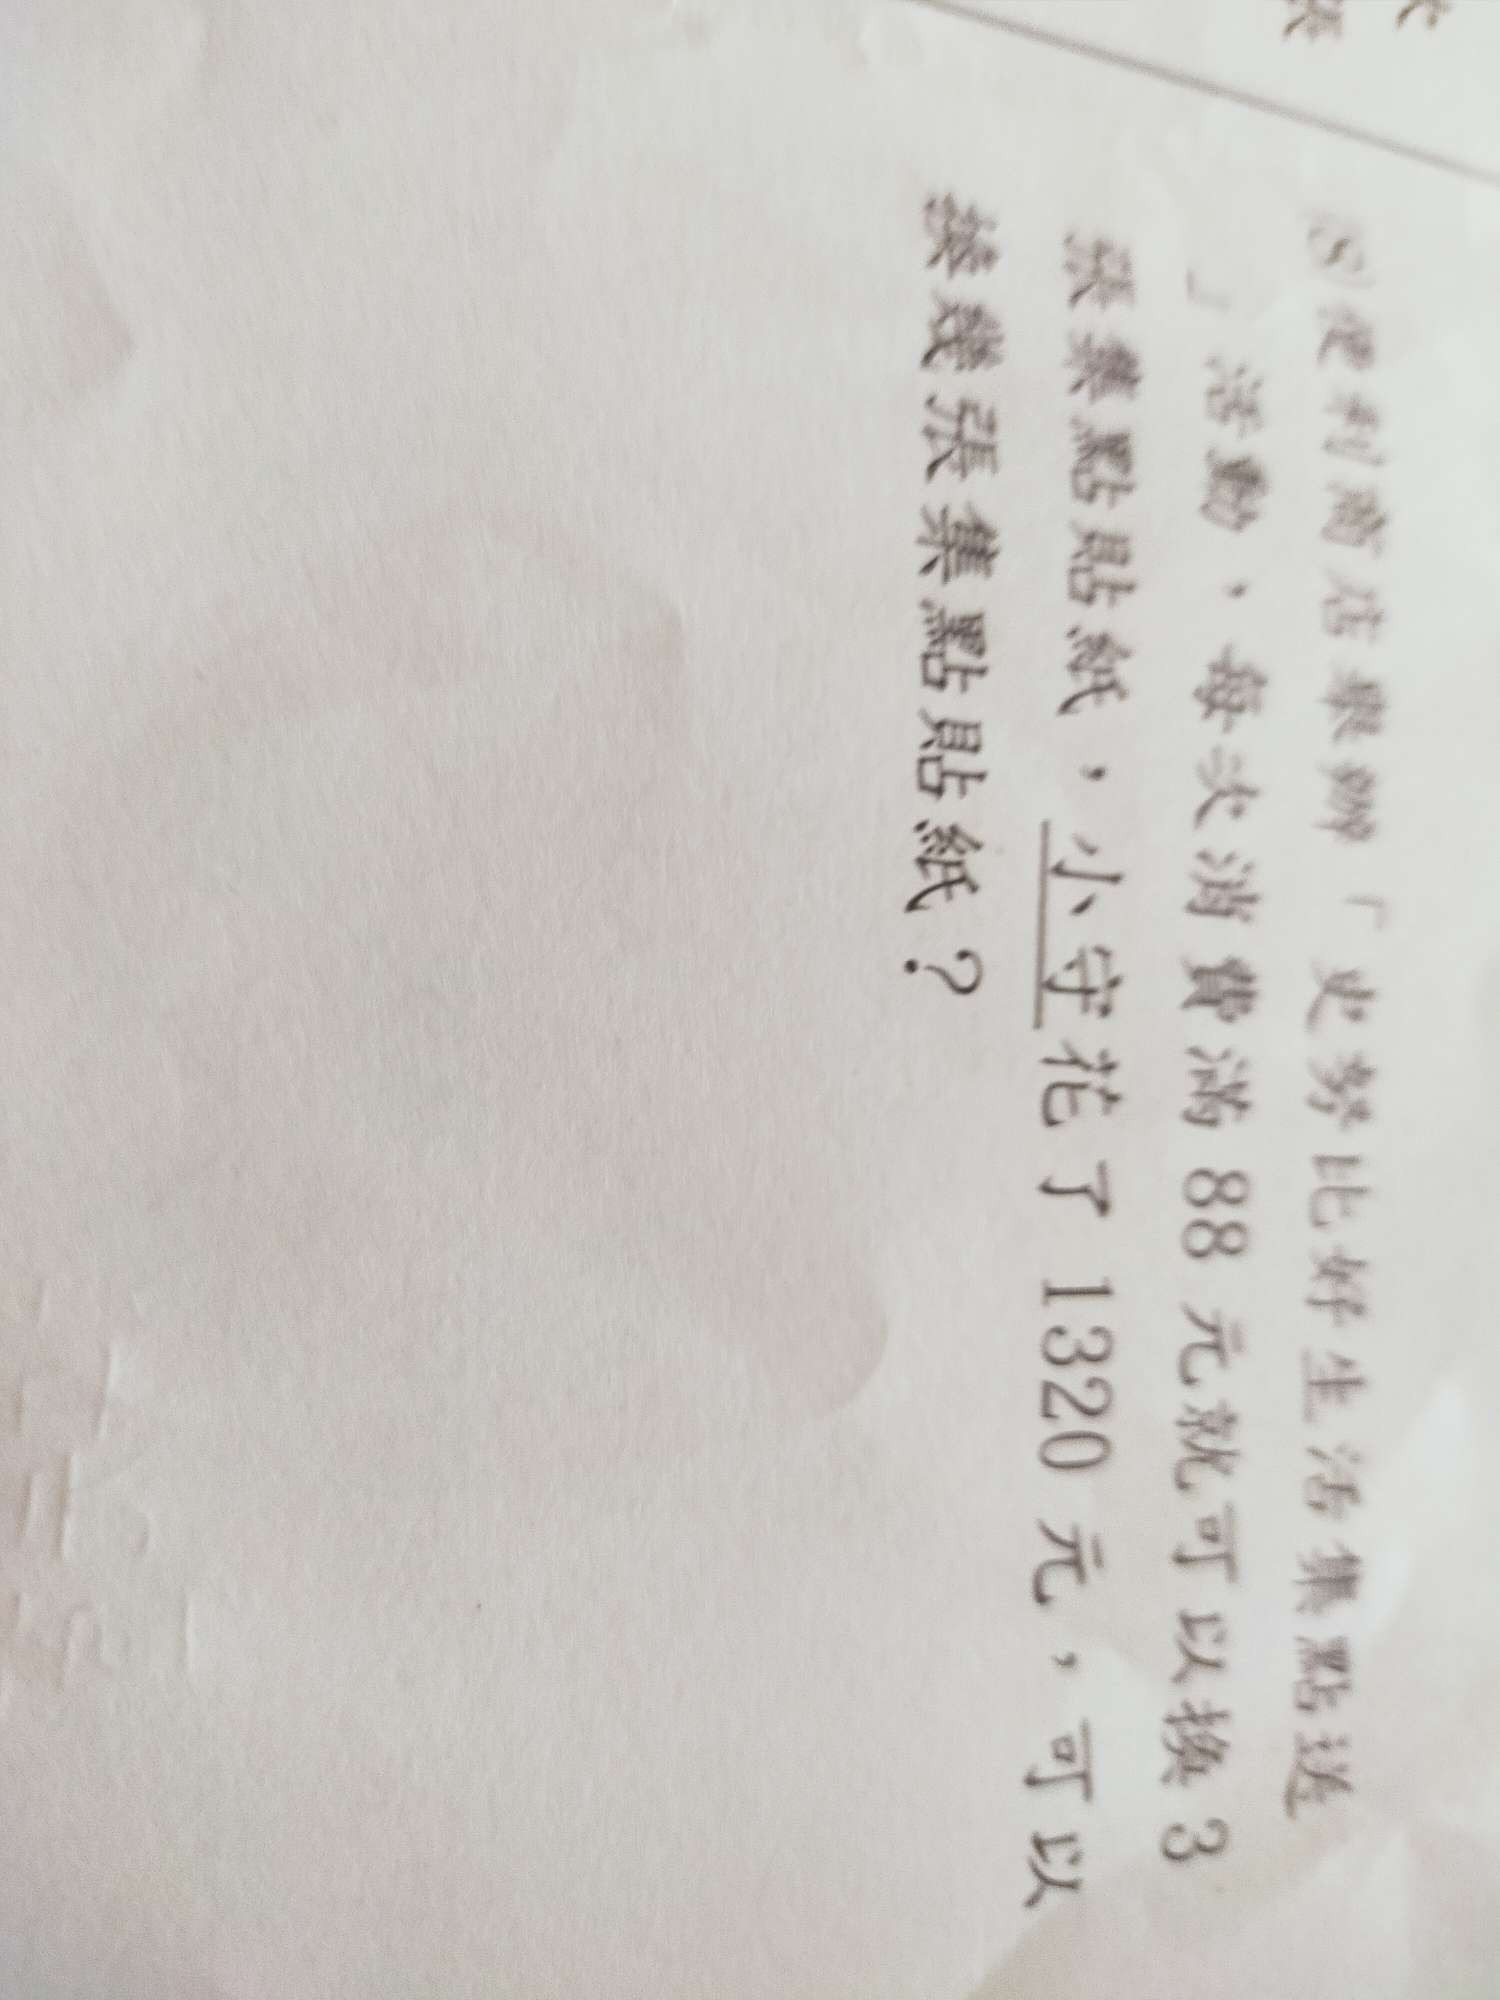 ⑻便利商店舉辦「史努比好生活集點送
」活動，每次消費滿 88 元就可以換 3
張集點貼紙，小守花了 1320 元，可以
換幾張集點貼紙？